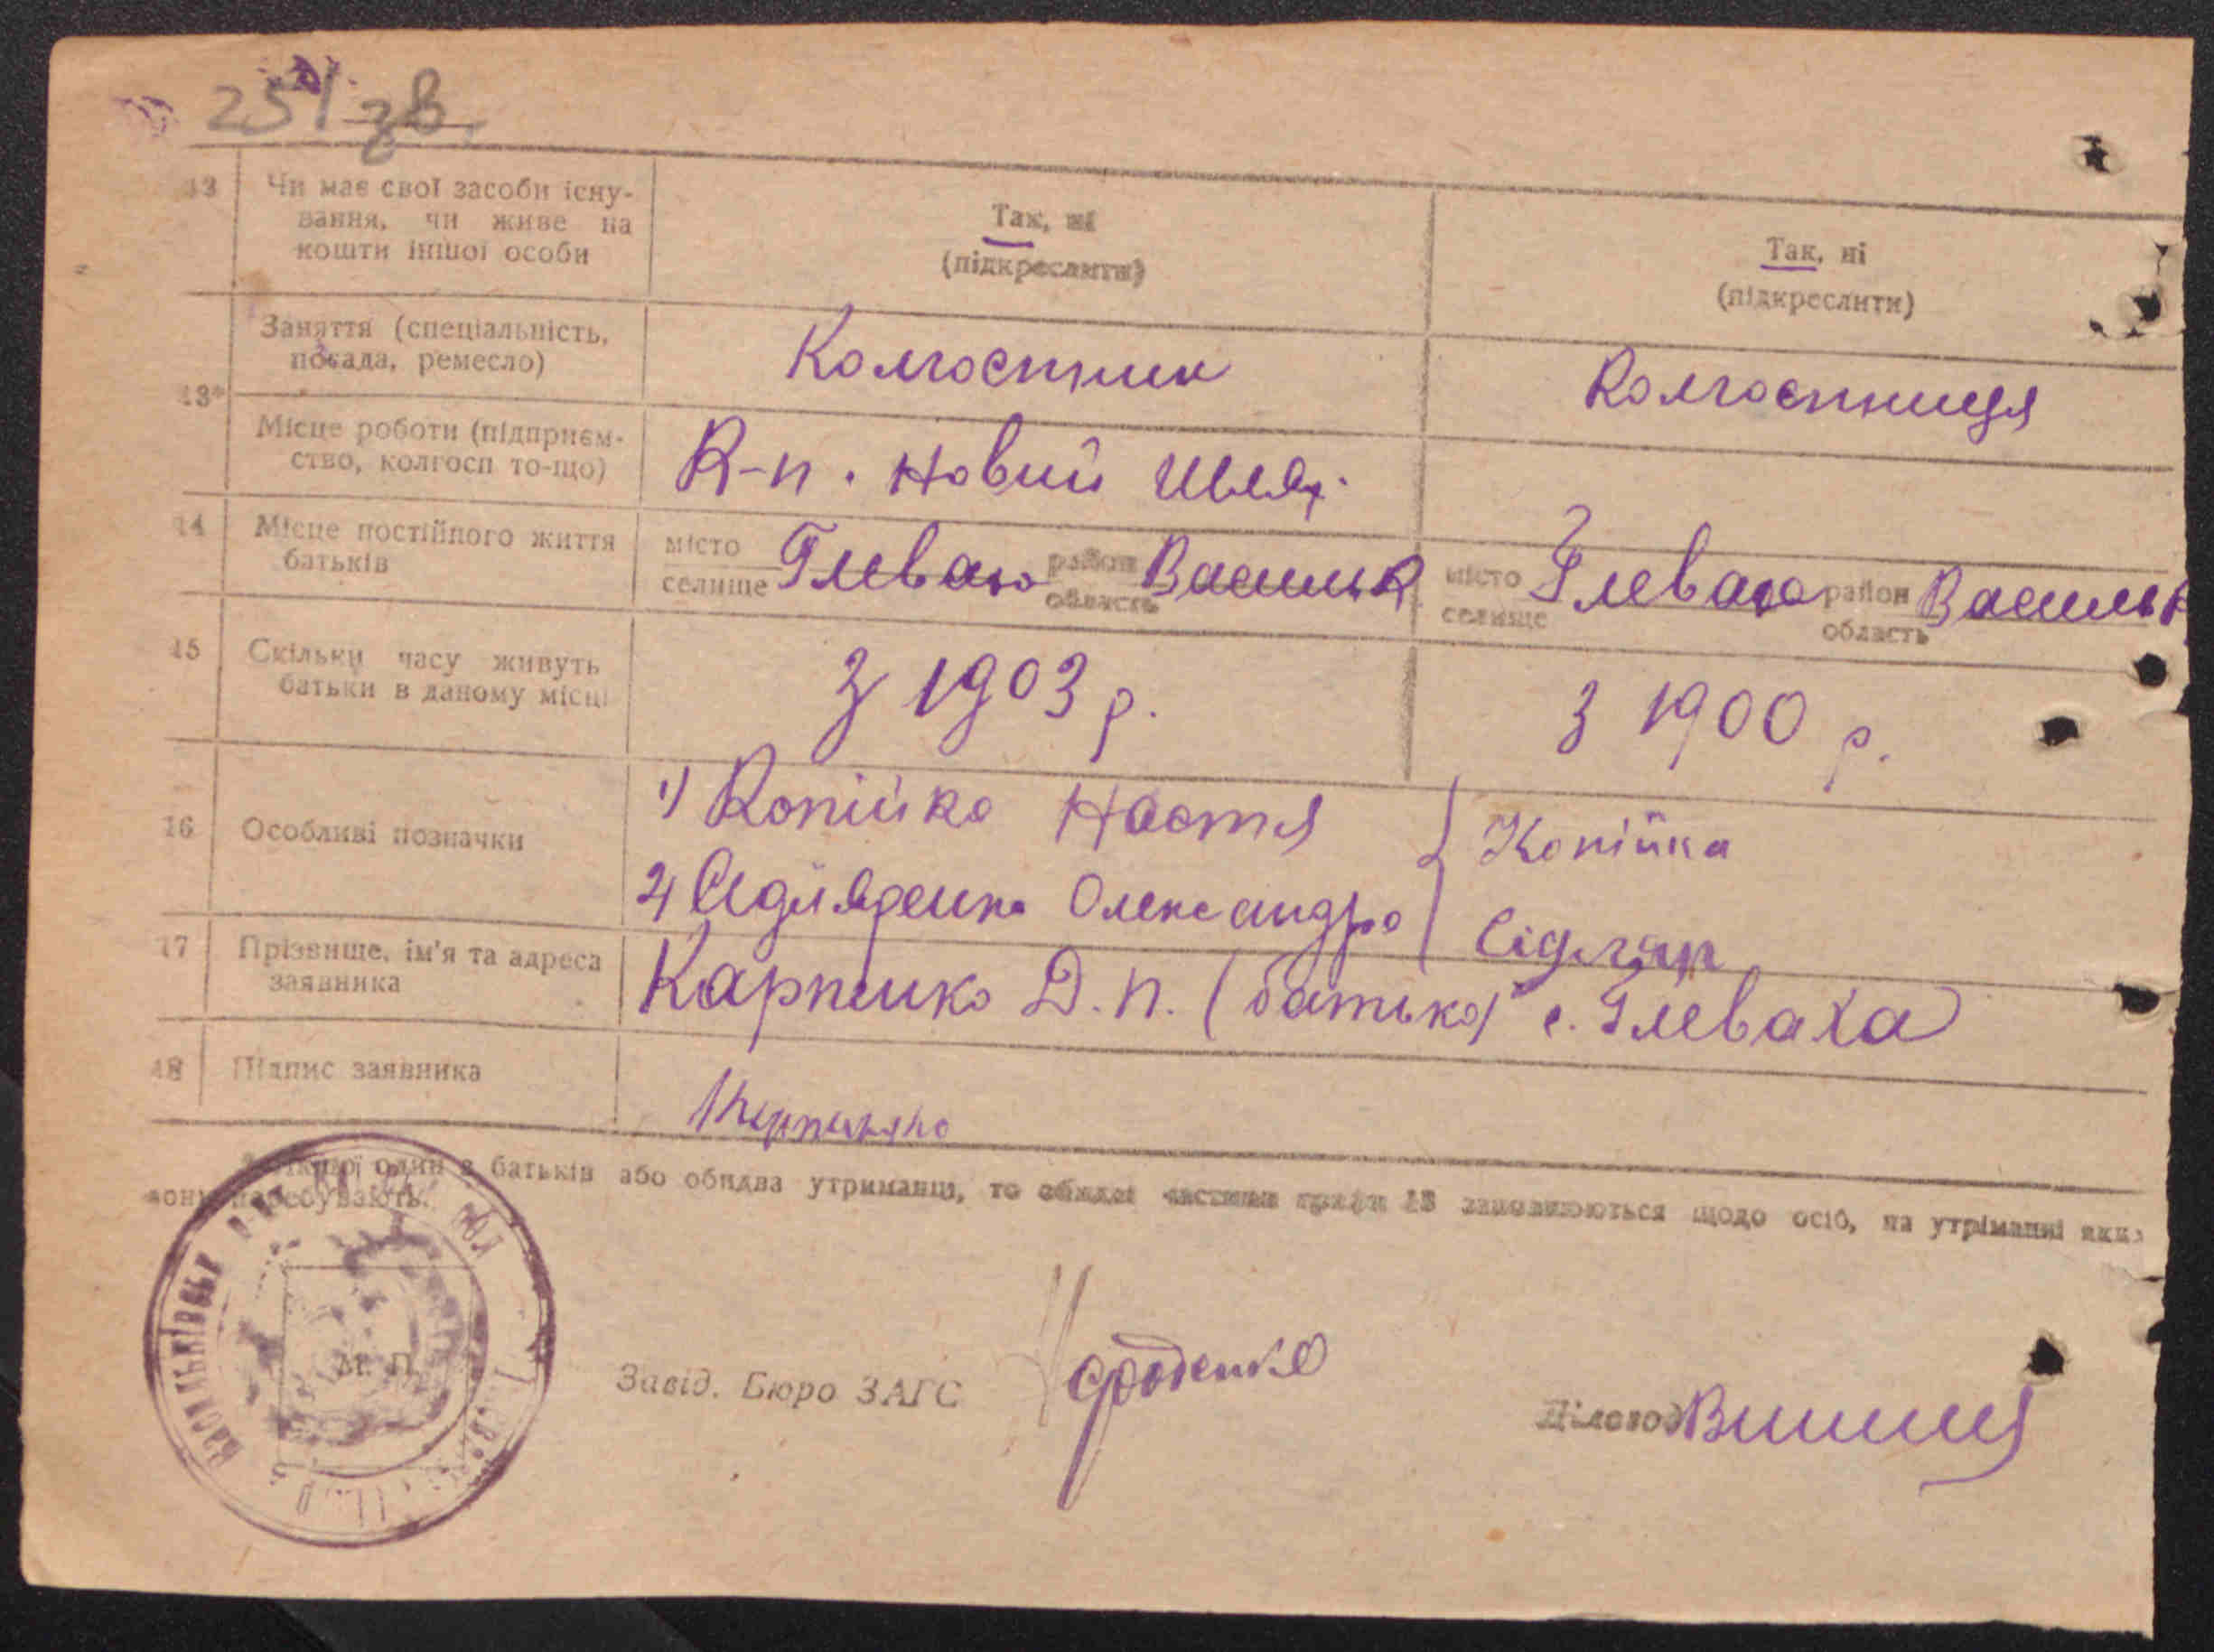 251 зв.
13 Чи має свої засоби існу-
вання, чи живе на
кошти іншої особи
Так, ні
(підкреслити)
Так, ні
(підкреслити)
13* Заняття (спеціальність,
посада, ремесло)
Колгоспник
Колгоспниця
Місце роботи (підприєм-
ство, колгосп то-що)
К-п. Новий Шлях.
14 Місце постійного життя
батьків
місто
селище
Глеваха
район
область
Васильк
місто
селище
Глеваха
район
область
Васильк
15 Скільки часу живуть
батьки в даному місці
З 1903 р.
З 1900 р.
16 Особливі позначки
1) Копійка Настя
Копійка
2) Олександра
Сідляр
17 Прізвище, ім'я та адреса
заявника
Карпенко Д. П. (батько) с. Глеваха
18 Підпис заявника
один з батьків або обидва утриманці, то обидві частини графи 13 заповнюються щодо осіб, на утріманні яких
вони перебувають.
Васильківськ
М. П.
Завід. Бюро ЗАГС
Діловод